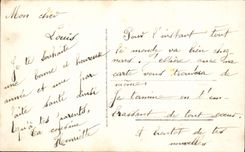 Mon cher
Louis
Je te souhaite
une bonne et heureuse
année et une par
faite santé ainsi
qu'à tes parents,
ta cousine
Henriette
Pour l'instant tout
le monde va bien chez
nous. J'espère que ma
carte vous trouvera de
même
Je termine en t'em
brassant de tout coeur.
A bientôt de tes
nouvelles